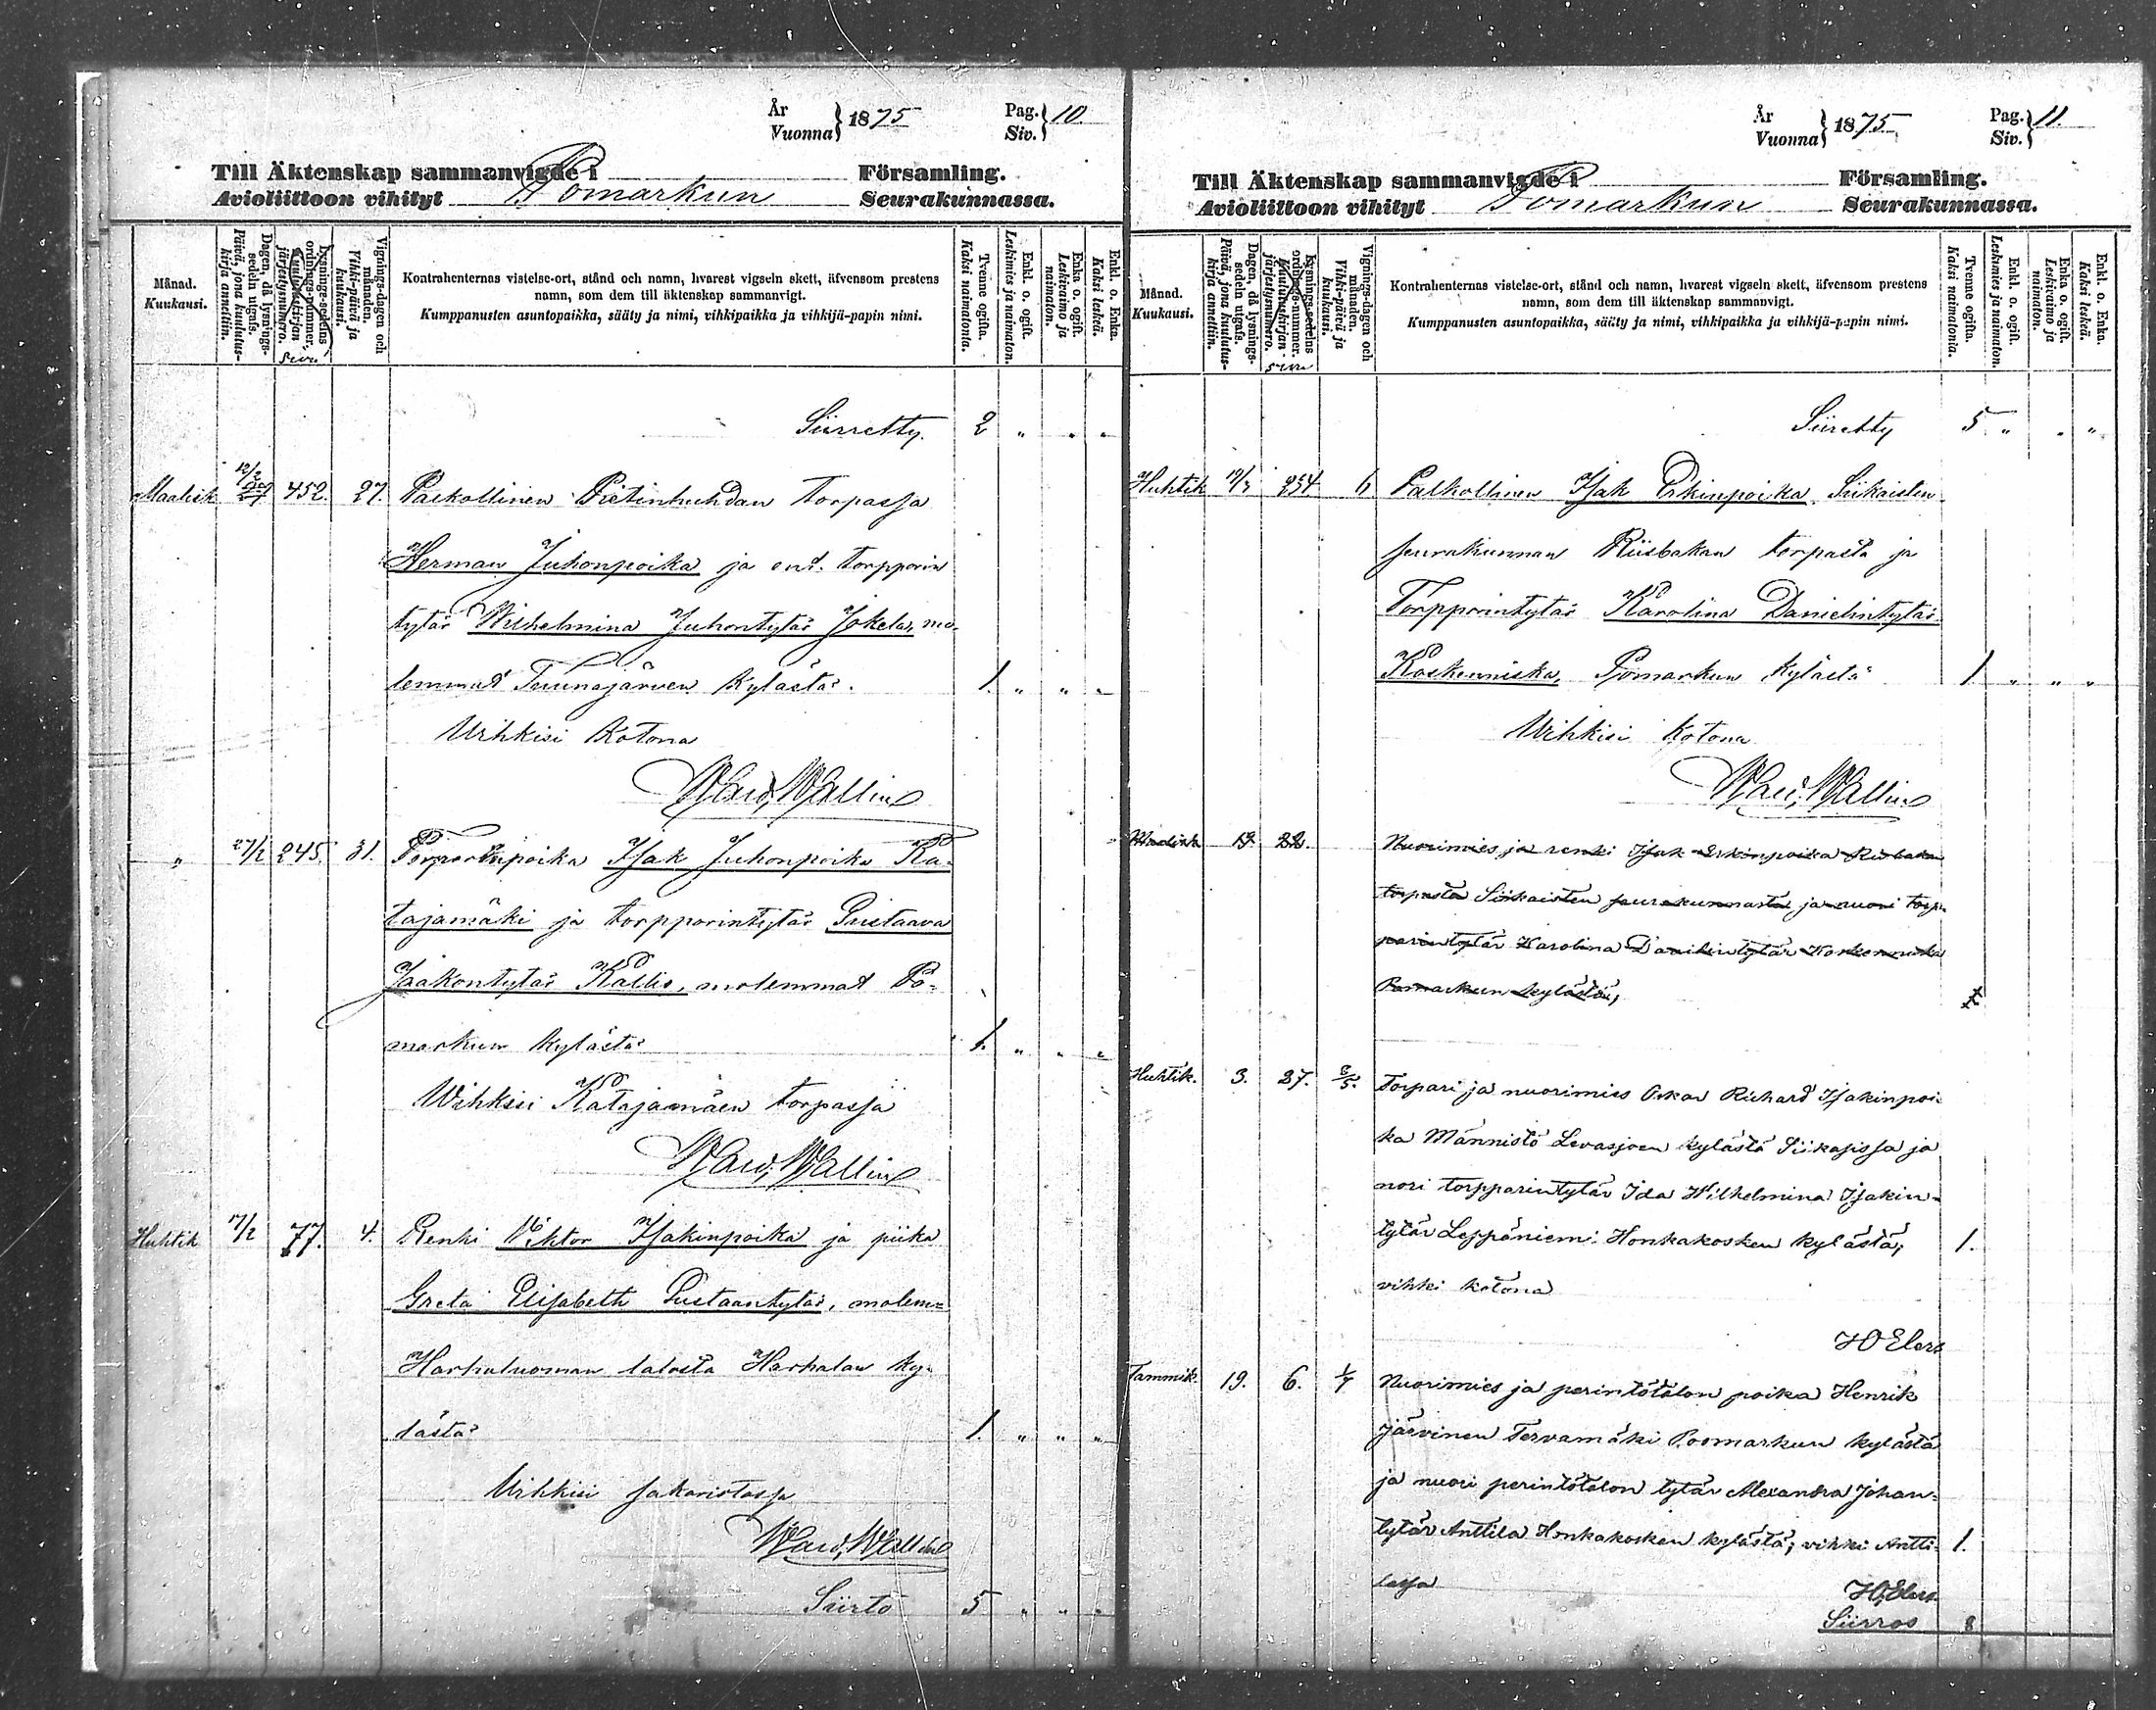 År
Vuonna } 1875
Pag.
Siv. } 10.
Till Äktenskap sammanvigde i Församling.
Avioliittoon vihityt Pomarkun Seurakunnassa.
Månad.
Kuukausi.
Dagen, då lysnings-
sedeln utgafs.
Päivä, jona kuulutus-
kirja annettiin.
Lysnings-sedelns
ordnings-nummer.
Kuulutuskirjan
järjestysnumero.
Sivu
Vignings-dagen och
månaden.
Vihki-päivä ja
kuukausi.
Kontrahenternas vistelse-ort, stånd och namn, hvarest vigseln skett, äfvensom prestens
namn, som dem till äktenskap sammanvigt.
Kumppanusten asuntopaikka, sääty ja nimi, vihkipaikka ja vihkijä-papin nimi.
Tvenne ogifta.
Kaksi naimatonta.
Enkl. o. ogift.
Leskimies ja naimaton.
Enka o. ogift.
Leskivaimo ja
naimaton.
Enkl. o. Enka.
Kaksi leskeä.
Siirretty. 2 " " "
Maalisk 452. 27. Palkollinen Torpassa
Herman Juhonpoika ja ent. torpparin
tytär Wilhelmina Juhontytär Jokela, mo-
lemmat Tuunajärven kylästä. 1. " " "
Wihkisi Kotona
Wallin
" 27/2 245. 31. Torparinpoika Isak Juhonpoika Ka-
tajamäki ja torpparintytär Gustaava
Jaakontytär Kallio, molemmat Po-
markun kylästä 1. " " "
Wihkisi Katajamäen torpassa
Wallin
Huhtik 77. 4. Renki Wiktor Isakinpoika ja piika
Greta Elisabeth Gustaantytär, molem=
Harhaluoman talosta Harhalan ky-
lästä 1. " " "
Wihkisi sakaristossa
Wallin
Siirto 5 " " "
År
Vuonna } 1875.
Pag.
Siv. } 11.
Till Äktenskap sammanvigde i Församling.
Avioliittoon vihityt Pomarkun Seurakunnassa.
Månad.
Kuukausi.
Dagen, då lysnings-
sedeln utgafs.
Päivä, jona kuulutus-
kirja annettiin.
Lysnings-sedelns
ordnings-nummer.
Kuulutuskirjan
järjestysnumero.
sivu
Vignings-dagen och
månaden.
Vihki-päivä ja
kuukausi.
Kontrahenternas vistelse-ort, stånd och namn, hvarest vigseln skett, äfvensom prestens
namn, som dem till äktenskap sammanvigt.
Kumppanusten asuntopaikka, sääty ja nimi, vihkipaikka ja vihkijä-papin nimi.
Tvenne ogifta.
Kaksi naimatonia.
Enkl. o. ogift.
Leskimies ja naimaton.
Enka o. ogift.
Leskivaimo ja
naimaton.
Enkl. o. Enka.
Kaksi leskeä.
Siiretty 5 " " "
Huhtik 19/3 254 6 Palkollinen Isak Erkinpoika Siikaisten
seurakunnan Riisbakan torpasta ja
Torpparintytär Karolina Danielintytär
Koskenniska, Pomarkun kylästä 1 " " "
Wihkisi kotona
Wallin
Maalisk 19 22. Nuorimies ja renki Isak Erkinpoika Risbaka
torpasta Siikaisten seurakunnasta ja nuori torp-
parintytär Karolina Danielintytär Koskenniska
Pomarkun kylästä, 1
Huhtik. 3. 27. 2/5. Torpari ja nuorimies Oskar Richard Isakinpoi-
ka Männistö Levasjoen kylästä Siikaisissa ja
nori torpparintytär Ida Wilhelmina Isakin-
tytär Leppäniemi Honkakosken kylästä, 1.
vihki kotona
HO Elers
Tammik. 19. 6. Nuorimies ja perintötalon poika Henrik
Järvinen Tervamäki Poomarkun kylästä
ja nuori perintötalon tytär Alexandra Johan-
tytär Anttila Honkakosken kylästä, vihki Antti- 1.
lassa
HO Elers
Siirros 8